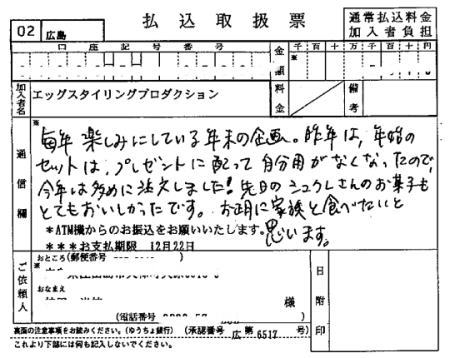 払込取扱票
通常払込料金
加入者負担
02 広島
口座記号番号
金額
千百十万千百十円
加入者名
エッグスタイリングプロダクション
料金
備考
通信欄
※
毎年 楽しみにしている年末の企画。昨年は、年始の
セットは、プレゼントに配って自分用がなくなったので、
今年は多めに注文しました!先日のシュクレさんのお菓子も
とてもおいしかったです。お正月に家族と食べたいと
思います。
*ATM機からのお振込をお願いいたします。
***お支払期限 12月22日
ご依頼人
おところ(郵便番号
おなまえ
様
(電話番号
日附印
裏面の注意事項をお読みください。(ゆうちょ銀行) (承認番号 広 第 6517 号)
これより下部には何も記入しないでください。